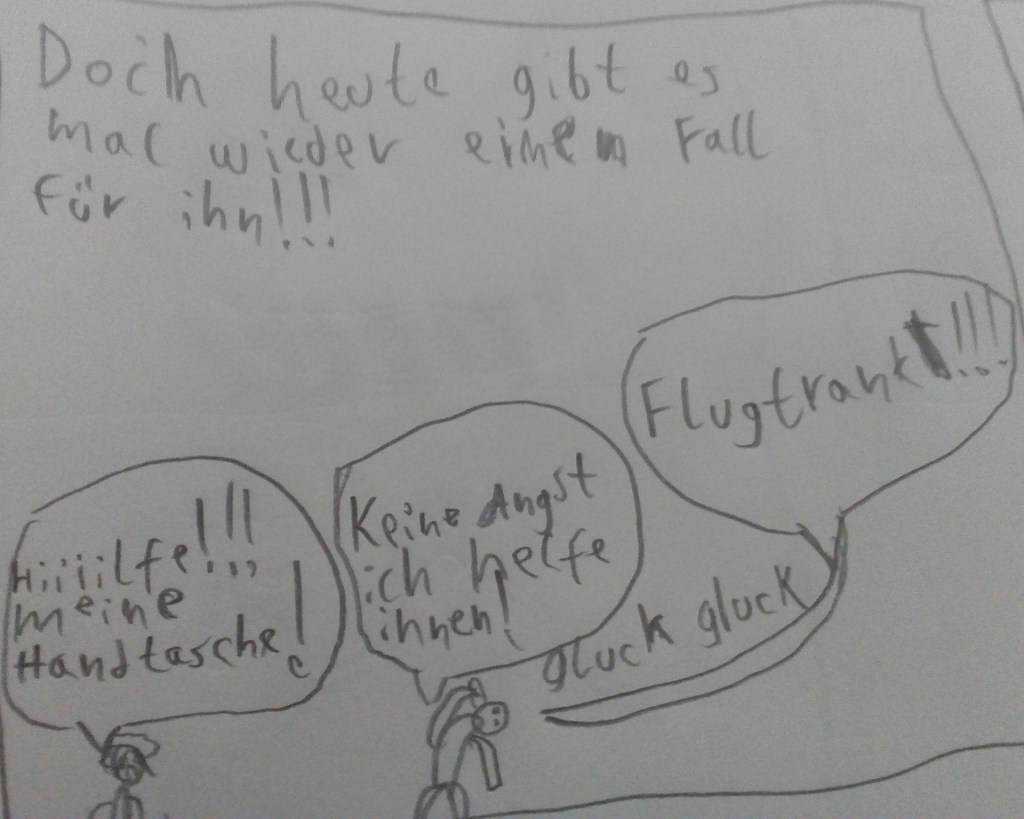 Doch heute gibt es
mal wieder einen Fall
für ihn!!!
Hiiiilfe!!!
meine
Handtasche!
Keine Angst
ich helfe
ihnen!
Flugtrank!!!
gluck gluck